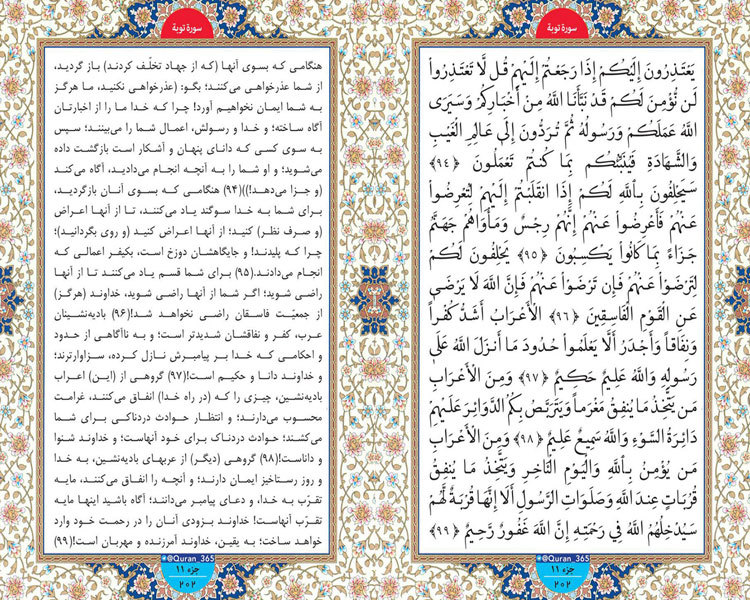 سورة توبة
یَعْتَذِرُونَ إِلَیْکُمْ إِذَا رَجَعْتُمْ إِلَیْهِمْ قُل لَّا تَعْتَذِرُواْ
لَن نُّؤْمِنَ لَکُمْ قَدْ نَبَّأَنَا اللَّهُ مِنْ أَخْبَارِکُمْ وَسَیَرَى
اللَّهُ عَمَلَکُمْ وَرَسُولُهُ ثُمَّ تُرَدُّونَ إِلَى عَالِمِ الْغَیْبِ
وَالشَّهَادَةِ فَیُنَبِّئُکُم بِمَا کُنتُمْ تَعْمَلُونَ ﴿۹۴﴾
سَیَحْلِفُونَ بِاللَّهِ لَکُمْ إِذَا انقَلَبْتُمْ إِلَیْهِمْ لِتُعْرِضُواْ
عَنْهُمْ فَأَعْرِضُواْ عَنْهُمْ إِنَّهُمْ رِجْسٌ وَمَأْوَاهُمْ جَهَنَّمُ
جَزَاءً بِمَا کَانُواْ یَکْسِبُونَ ﴿۹۵﴾ یَحْلِفُونَ لَکُمْ
لِتَرْضَوْاْ عَنْهُمْ فَإِن تَرْضَوْاْ عَنْهُمْ فَإِنَّ اللَّهَ لَا یَرْضَى
عَنِ الْقَوْمِ الْفَاسِقِینَ ﴿۹۶﴾ الْأَعْرَابُ أَشَدُّ کُفْراً
وَنِفَاقاً وَأَجْدَرُ أَلَّا یَعْلَمُواْ حُدُودَ مَا أَنزَلَ اللَّهُ عَلَى
رَسُولِهِ وَاللَّهُ عَلِیمٌ حَکِیمٌ ﴿۹۷﴾ وَمِنَ الْأَعْرَابِ
مَن یَتَّخِذُ مَا یُنفِقُ مَغْرَماً وَیَتَرَبَّصُ بِکُمُ الدَّوَائِرَ عَلَیْهِمْ
دَائِرَةُ السَّوْءِ وَاللَّهُ سَمِیعٌ عَلِیمٌ ﴿۹۸﴾ وَمِنَ الْأَعْرَابِ
مَن یُؤْمِنُ بِاللَّهِ وَالْیَوْمِ الْآخِرِ وَیَتَّخِذُ مَا یُنفِقُ
قُرُبَاتٍ عِندَ اللَّهِ وَصَلَوَاتِ الرَّسُولِ أَلَا إِنَّهَا قُرْبَةٌ لَّهُمْ
سَیُدْخِلُهُمُ اللَّهُ فِی رَحْمَتِهِ إِنَّ اللَّهَ غَفُورٌ رَّحِیمٌ ﴿۹۹﴾
@Quran_365
جزء ۱۱
۲۰۲
سورة توبة
هنگامی که بسوی آنها (که از جهاد تخلّف کردند) باز گردید،
از شما عذرخواهی می‌کنند؛ بگو: (عذرخواهی نکنید، ما هرگز
به شما ایمان نخواهیم آورد! چرا که خدا ما را از اخبارتان
آگاه ساخته؛ و خدا و رسولش، اعمال شما را می‌بینند؛ سپس
به سوی کسی که دانای پنهان و آشکار است بازگشت داده
می‌شوید؛ و او شما را به آنچه انجام می‌دادید، آگاه می‌کند
(و جزا می‌دهد!))(۹۴) هنگامی که بسوی آنان بازگردید،
برای شما به خدا سوگند یاد می‌کنند، تا از آنها اعراض
(و صرف نظر) کنید؛ از آنها اعراض کنید (و روی بگردانید)؛
چرا که پلیدند! و جایگاهشان دوزخ است، بکیفر اعمالی که
انجام می‌دادند.(۹۵) برای شما قسم یاد می‌کنند تا از آنها
راضی شوید؛ اگر شما از آنها راضی شوید، خداوند (هرگز)
از جمعیّت فاسقان راضی نخواهد شد!(۹۶) بادیه‌نشینان
عرب، کفر و نفاقشان شدیدتر است؛ و به ناآگاهی از حدود
و احکامی که خدا بر پیامبرش نازل کرده، سزاوارترند؛
و خداوند دانا و حکیم است!(۹۷) گروهی از (این) اعراب
بادیه‌نشین، چیزی را که (در راه خدا) انفاق می‌کنند، غرامت
محسوب می‌دارند؛ و انتظار حوادث دردناکی برای شما
می‌کشند؛ حوادث دردناک برای خود آنهاست؛ و خداوند شنوا
و داناست!(۹۸) گروهی (دیگر) از عربهای بادیه‌نشین، به خدا
و روز رستاخیز ایمان دارند؛ و آنچه را انفاق می‌کنند، مایه
تقرّب به خدا، و دعای پیامبر می‌دانند؛ آگاه باشید اینها مایه
تقرّب آنهاست! خداوند بزودی آنان را در رحمت خود وارد
خواهد ساخت؛ به یقین، خداوند آمرزنده و مهربان است!(۹۹)
@Quran_365
جزء ۱۱
۲۰۲